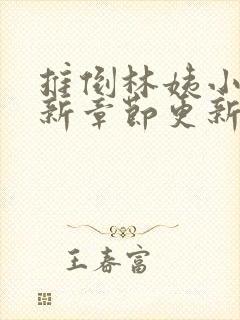 推倒林姨小
新章节更新
王春富